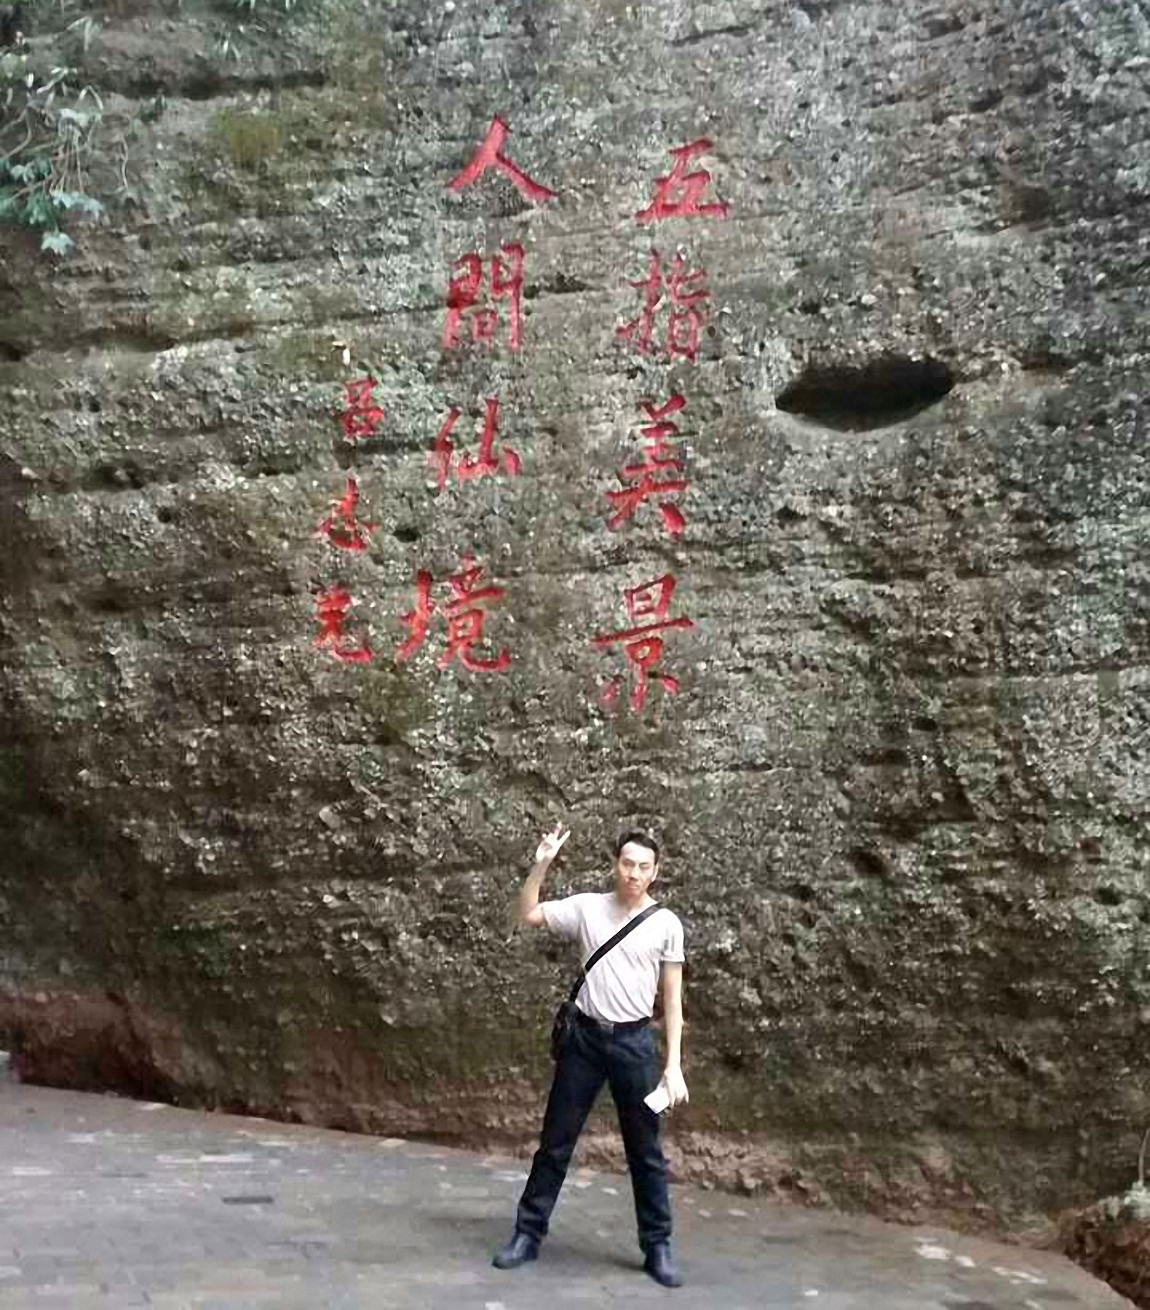 五指美景
人間仙境
呂志克